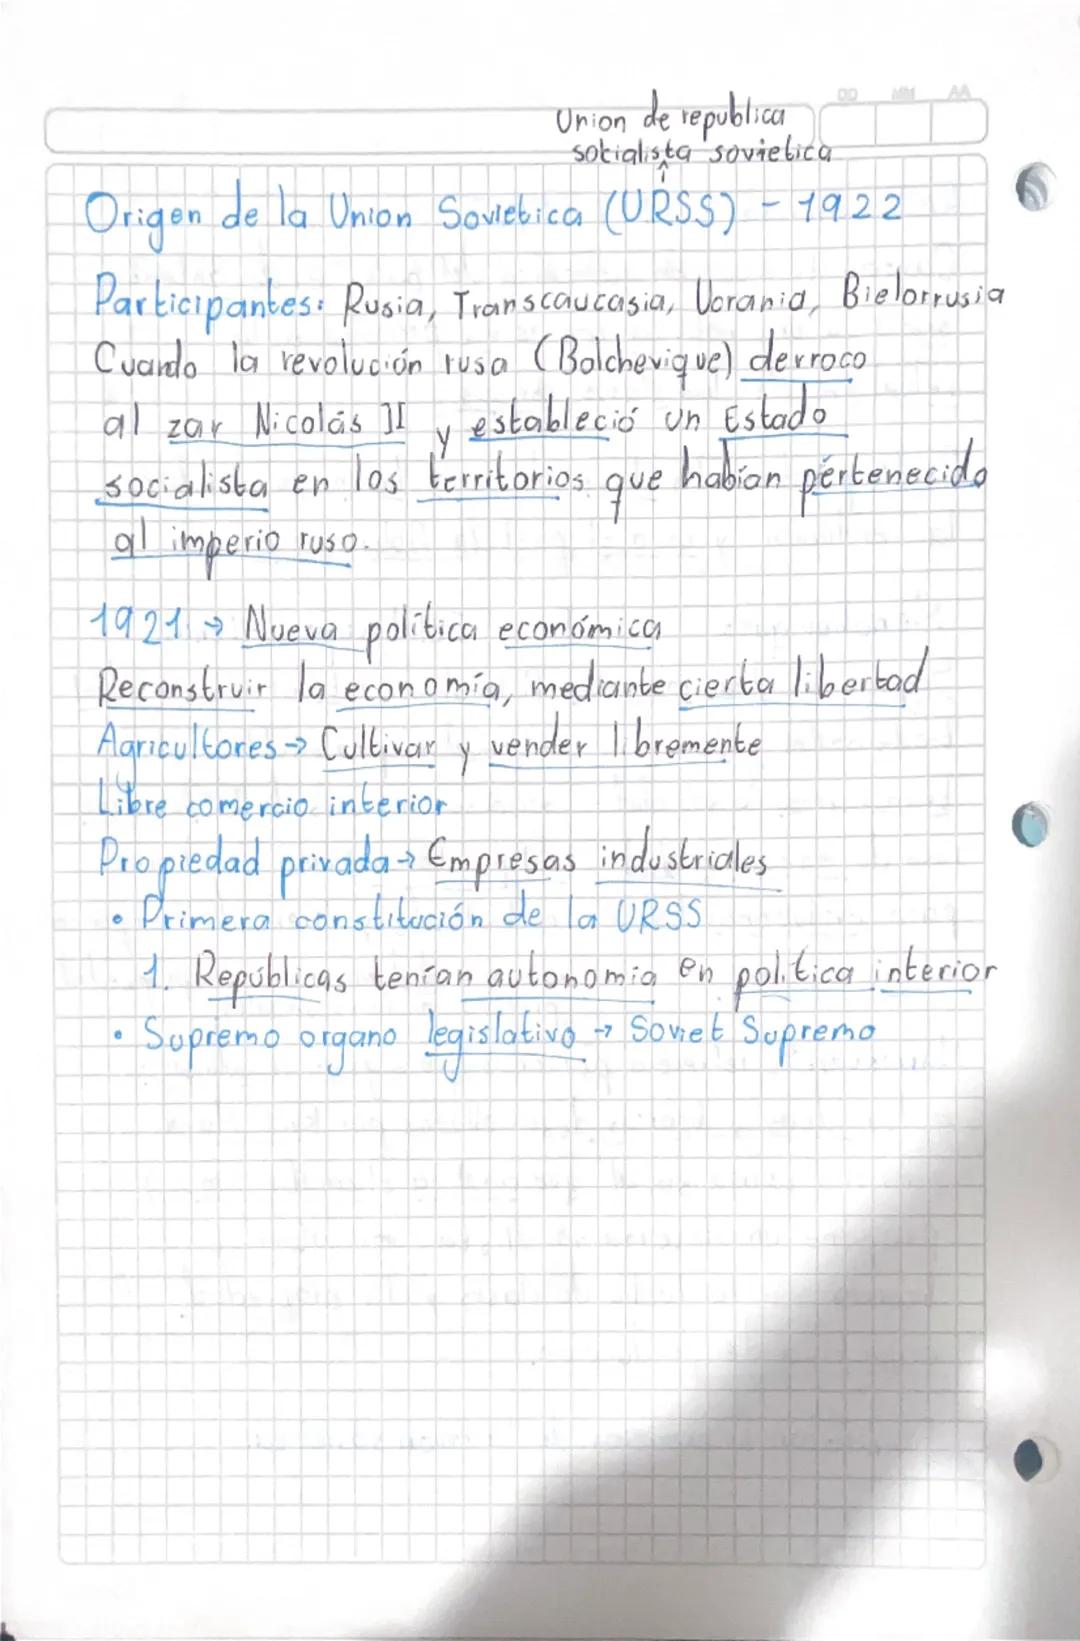 DD MM AA
Union de republica
sotialista sovietica
Origen de la Union Sovietica (URSS) - 1922
Participantes: Rusia, Transcaucasia, Ucrania, Bielorrusia
Cuando la revolución rusa (Bolchevique) derroco
al zar Nicolás II y estableció un Estado
socialista en los territorios que habían pertenecido
al imperio ruso.
1921 → Nueva política económica
Reconstruir la economía, mediante cierta libertad
Agricultores → Cultivar y vender libremente
Libre comercio interior
Propiedad privada → Empresas industriales
• Primera constitución de la URSS
1. Repúblicas tenían autonomia en politica interior
• Supremo organo legislativo → Soviet Supremo